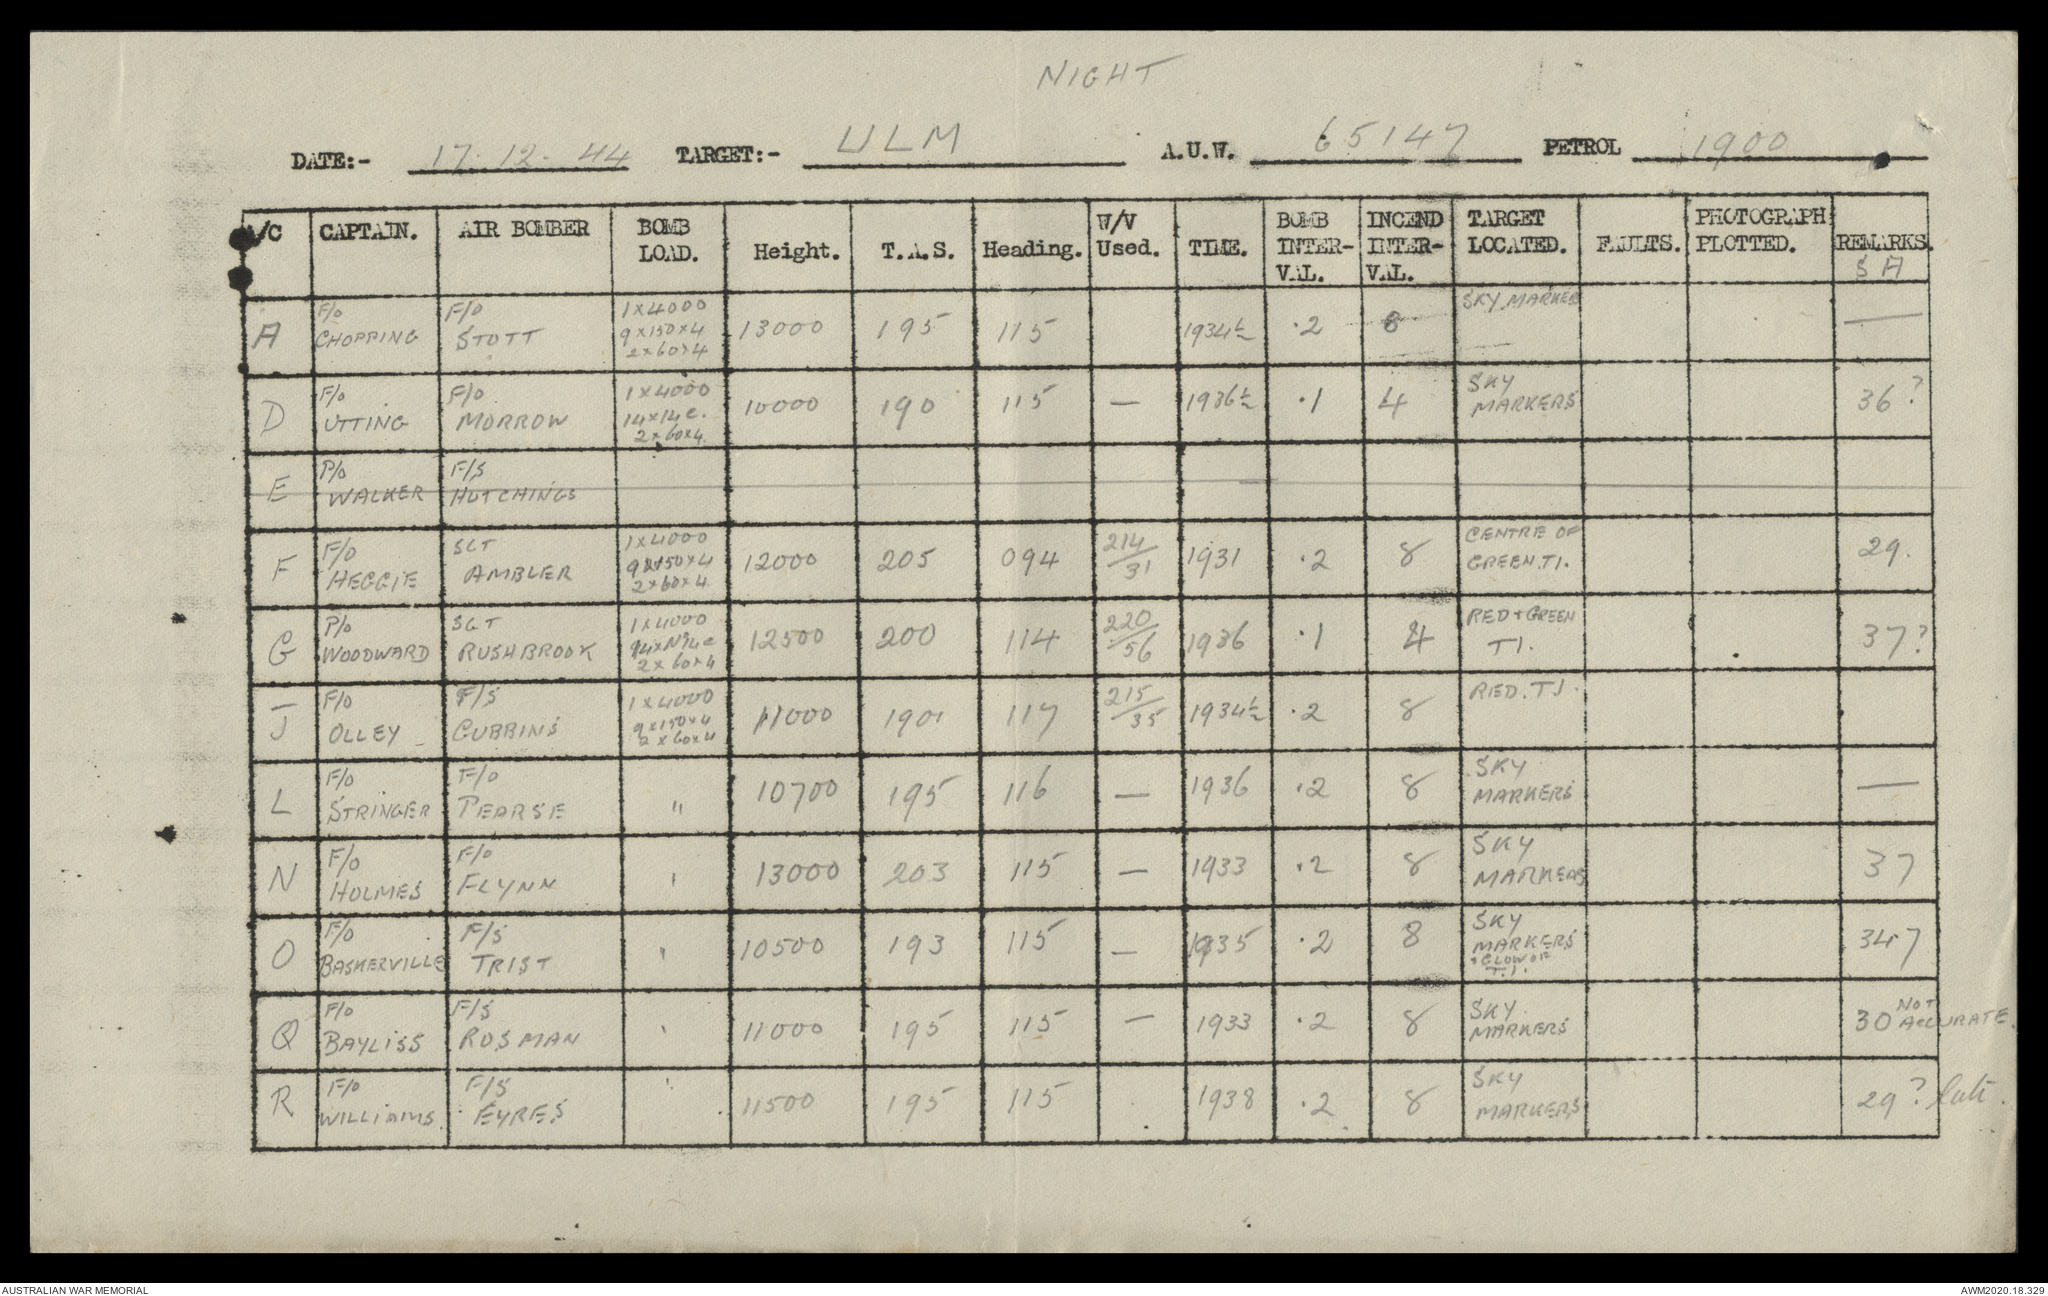 NIGHT
DATE:- 17.12.44 TARGET:- ULM A.U.W. 65147 PETROL 1900
A/C CAPTAIN. AIR BOMBER BOMB LOAD. Height. T.A.S. Heading. W/V Used. TIME. BOMB INTER-VAL. INCEND INTER-VAL. TARGET LOCATED. FAULTS. PHOTOGRAPH PLOTTED. REMARKS. S A
A F/O CHOPPING F/O STOTT 1x4000 9x150x4 2x60x4 13000 195 115 1934½ .2 8 SKY MARKER —
D F/O UTTING F/O MORROW 1x4000 14x14c. 2x60x4. 10000 190 115 — 1936½ .1 4 SKY MARKERS 36?
E P/O WALKER F/S HUTCHINGS
F F/O HEGGIE SGT AMBLER 1x4000 9x150x4 2x60x4. 12000 205 094 214/31 1931 .2 8 CENTRE OF GREEN.TI. 29.
G P/O WOODWARD SGT RUSHBROOK 1x4000 2x60x4 12500 200 114 220/56 1936 .1 4 RED + GREEN TI. 37?
J F/O OLLEY F/S GUBBINS 1x4000 9x150x4 2x60x4 11000 190 117 215/35 1934½ .2 8 RED.TI.
L F/O STRINGER F/O PEARSE " 10700 195 116 — 1936 .2 8 SKY MARKERS —
N F/O HOLMES F/O FLYNN ' 13000 203 115 — 1933 .2 8 SKY MARKERS 37
O F/O BASKERVILLE F/S TRIST ' 10500 193 115 — 1935 .2 8 SKY MARKERS + GLOW OF T.I. 34
Q F/O BAYLISS F/S ROSMAN ' 11000 195 115 — 1933 .2 8 SKY MARKERS 30 NOT ACCURATE.
R F/O WILLIAMS. F/S EYRES ' 11500 195 115 1938 .2 8 SKY MARKERS 29? late.
AUSTRALIAN WAR MEMORIAL AWM2020.18.329